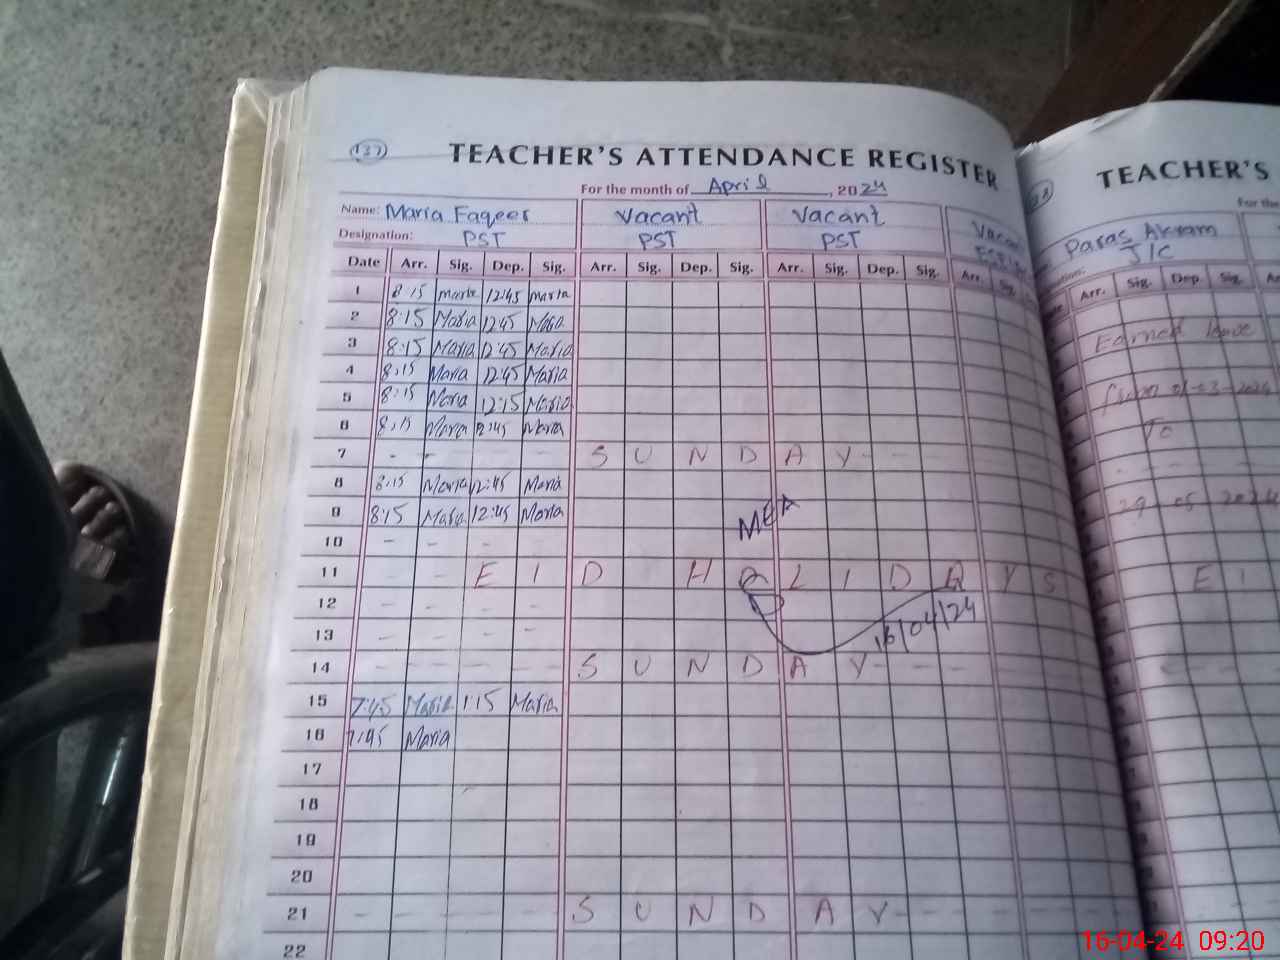 137
TEACHER'S ATTENDANCE REGISTER
For the month of April, 2024
Name: Maria Faqeer Vacant Vacant
Designation: PST PST PST
Date Arr. Sig. Dep. Sig. Arr. Sig. Dep. Sig. Arr. Sig. Dep. Sig. Arr. Sig.
1 8:15 Maria 12:45 Maria
2 8:15 Maria 12:45 Maria
3 8:15 Maria 12:45 Maria
4 8:15 Maria 12:45 Maria
5 8:15 Maria 12:15 Maria
6 8:15 Maria 12:45 Maria
7 - - SUNDAY - -
8 8:15 Maria 12:45 Maria
9 8:15 Maria 12:45 Maria
MEA
10 - - -
11 - - EID HOLIDAYS
12 - - - -
13 - - - -
16/04/24
14 - - - - SUNDAY - - -
15 7:45 Maria 1:15 Maria
16 7:45 Maria
17
18
19
20
21 - - - - SUNDAY - - -
22
TEACHER'S
For the
Paras Akram
J/C
Arr. Sig. Dep. Sig.
Earned leave
From 01-03-2024
To
29-05-2024
E I
16-04-24 09:20